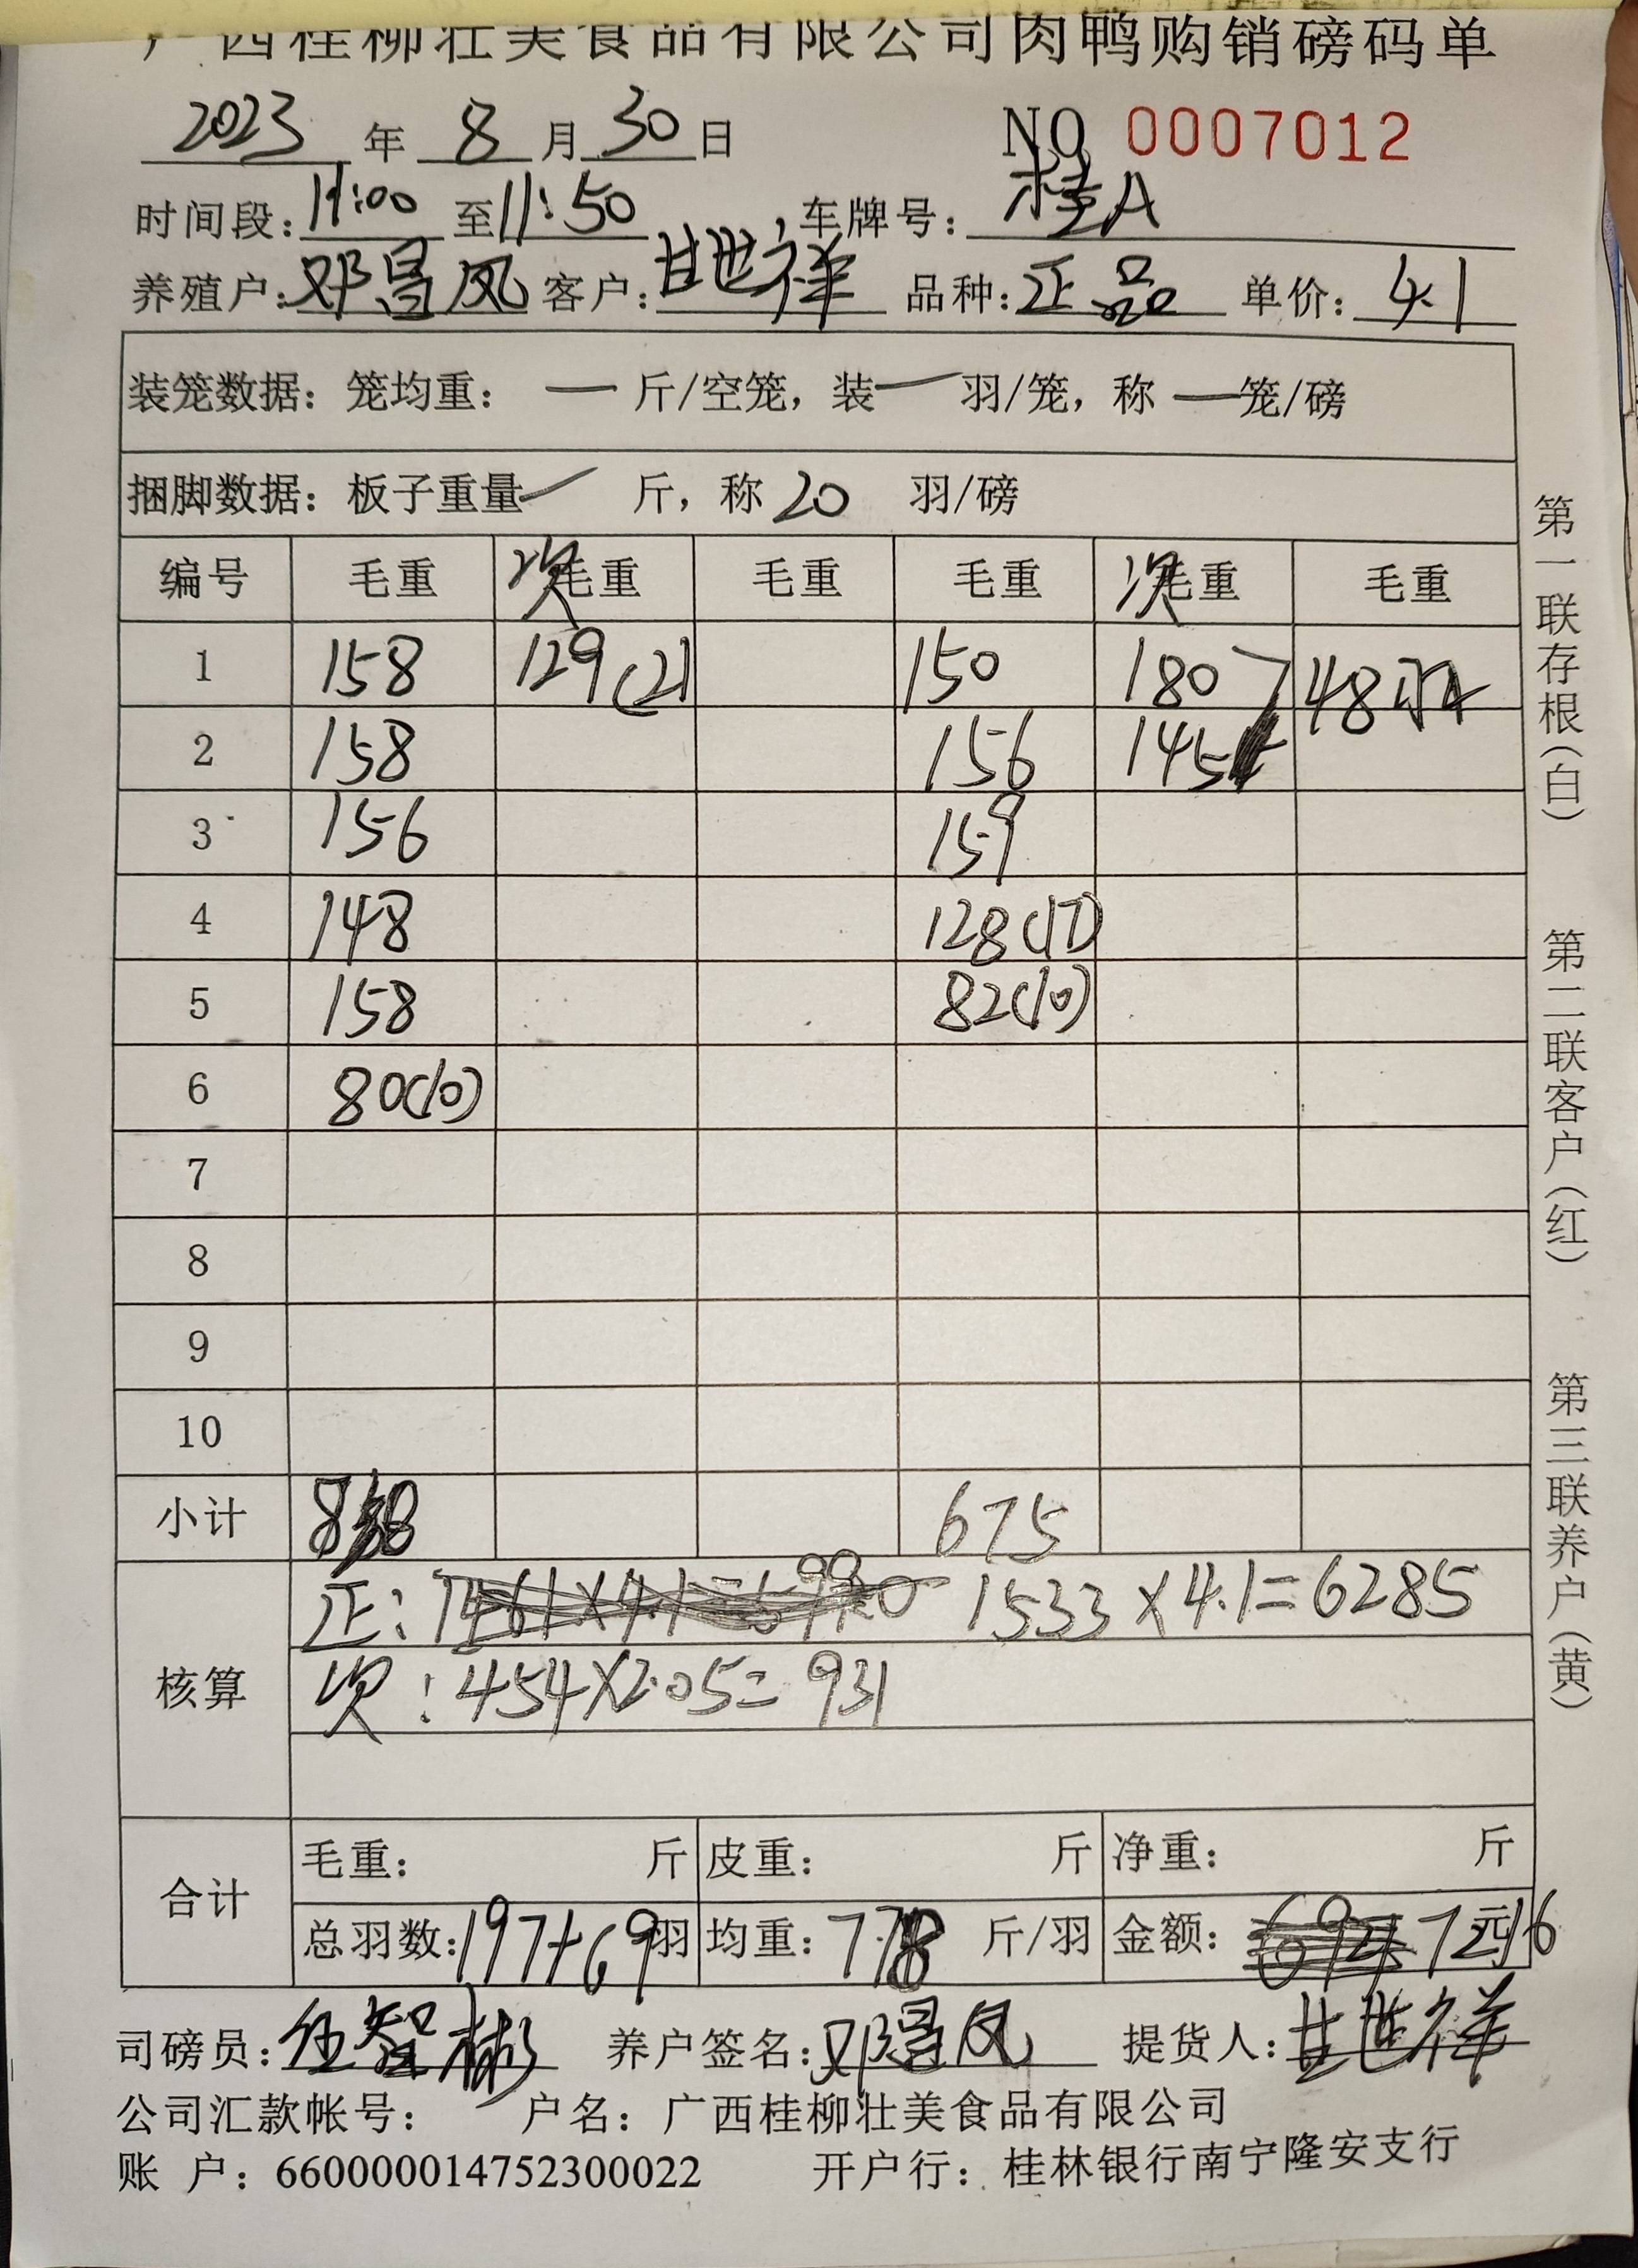 广西桂柳壮美食品有限公司肉鸭购销磅码单
2023 年 8 月 30 日 NO 0007012
时间段: 11:00 至 11:50 车牌号: 桂A
养殖户: 邓昌凤 客户: 甘世祥 品种: 正品 单价: 4.1
装笼数据: 笼均重: — 斤/空笼, 装 — 羽/笼, 称 — 笼/磅
捆脚数据: 板子重量 — 斤, 称 20 羽/磅
编号 毛重 次 毛重 毛重 毛重 次 毛重 毛重
1 158 129(21) 150 180 48羽
2 158 156 145
3 156 159
4 148 128(17)
5 158 82(10)
6 80(10)
7
8
9
10
小计 858 675
核算 正: 1533×4.1=6285
次: 454×2.05=931
合计 毛重: 斤 皮重: 斤 净重: 斤
总羽数: 197+69 羽 均重: 7.78 斤/羽 金额: 7216 元
司磅员: 伍智彬 养户签名: 邓昌凤 提货人: 甘世祥
公司汇款帐号: 户名: 广西桂柳壮美食品有限公司
账 户: 660000014752300022 开户行: 桂林银行南宁隆安支行
第一联存根(白) 第二联客户(红) 第三联养户(黄)